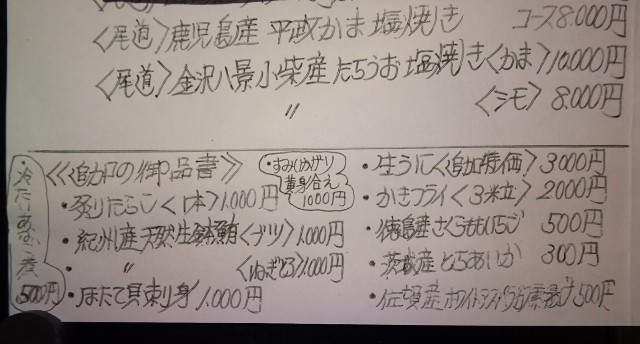 〈尾道〉鹿児島産 平政かま塩焼き コース8.000円
〈尾道〉金沢八景小柴産たちうお塩焼き〈かま〉10.000円
〃 〈シモ〉8.000円
《追加の御品書》
・炙りたらこ〈1本〉1.000円
・紀州産天然生鮪〈ブツ〉1.000円
・〃 〈ねぎとろ〉1.000円
・ほたて貝刺り身 1.000円
・冷たいあなご煮 500円
・すみいかザリ
黄身合え
1000円
・生うに〈追加特価〉3000円
・かきフライ〈3粒〉2000円
・徳島産さくらももいちご 500円
・茨城産とちあいか 300円
・佐賀産ホワイトアスパラガス素揚げ 500円